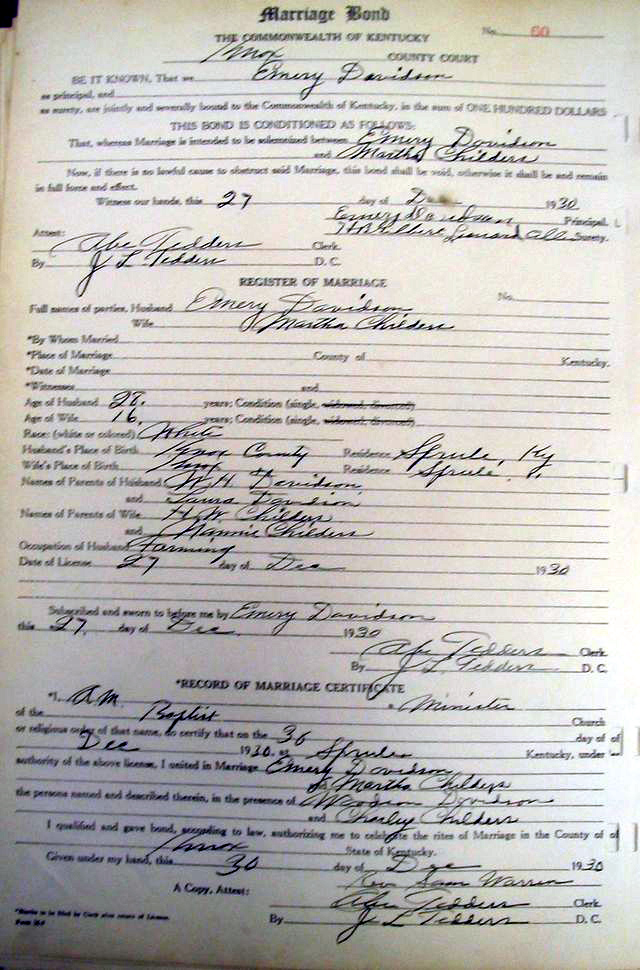 Marriage Bond
No. 60
THE COMMONWEALTH OF KENTUCKY
Knox COUNTY COURT
BE IT KNOWN, That we Emery Davidson
as principal, and
as surety, are jointly and severally bound to the Commonwealth of Kentucky, in the sum of ONE HUNDRED DOLLARS
THIS BOND IS CONDITIONED AS FOLLOWS:
That, whereas Marriage is intended to be solemnized between Emery Davidson
and Martha Childers
Now, if there is no lawful cause to obstruct said Marriage, this bond shall be void, otherwise it shall be and remain
in full force and effect.
Witness our hands, this 27 day of Dec 1930
Emery Davidson Principal.
Surety.
Attest:
Abe Tedders Clerk.
By J L Tedders D. C.
REGISTER OF MARRIAGE
No.
Full names of parties, Husband Emery Davidson
Wife Martha Childers
*By Whom Married
*Place of Marriage County of Kentucky.
*Date of Marriage
*Witnesses and
Age of Husband 28. years; Condition (single, widowed, divorced)
Age of Wife 16, years; Condition (single, widowed, divorced)
Race: (white or colored) White
Husband's Place of Birth Knox County Residence Sprule, Ky
Wife's Place of Birth Knox " Residence Sprule "
Names of Parents of Husband W. H. Davidson
and Laura Davidson
Names of Parents of Wife H. W. Childers
and Nannie Childers
Occupation of Husband Farming
Date of License 27 day of Dec 1930
Subscribed and sworn to before me by Emery Davidson
this 27 day of Dec 1930
Abe Tedders Clerk
By J L Tedders D. C.
*RECORD OF MARRIAGE CERTIFICATE
*I, A.M. a Minister
of the Baptist Church
or religious order of that name, do certify that on the 30 day of
Dec 1930, at Sprule Kentucky, under
authority of the above license, I united in Marriage Emery Davidson
& Martha Childers
the persons named and described therein, in the presence of Woodson Davidson
and Charly Childers
I qualified and gave bond, according to law, authorizing me to celebrate the rites of Marriage in the County of
Knox State of Kentucky.
Given under my hand, this 30 day of Dec 1930
Rev. Sam Warren
A Copy, Attest: Abe Tedders Clerk
By J L Tedders D. C.
*Blanks to be filled by Clerk after return of License.